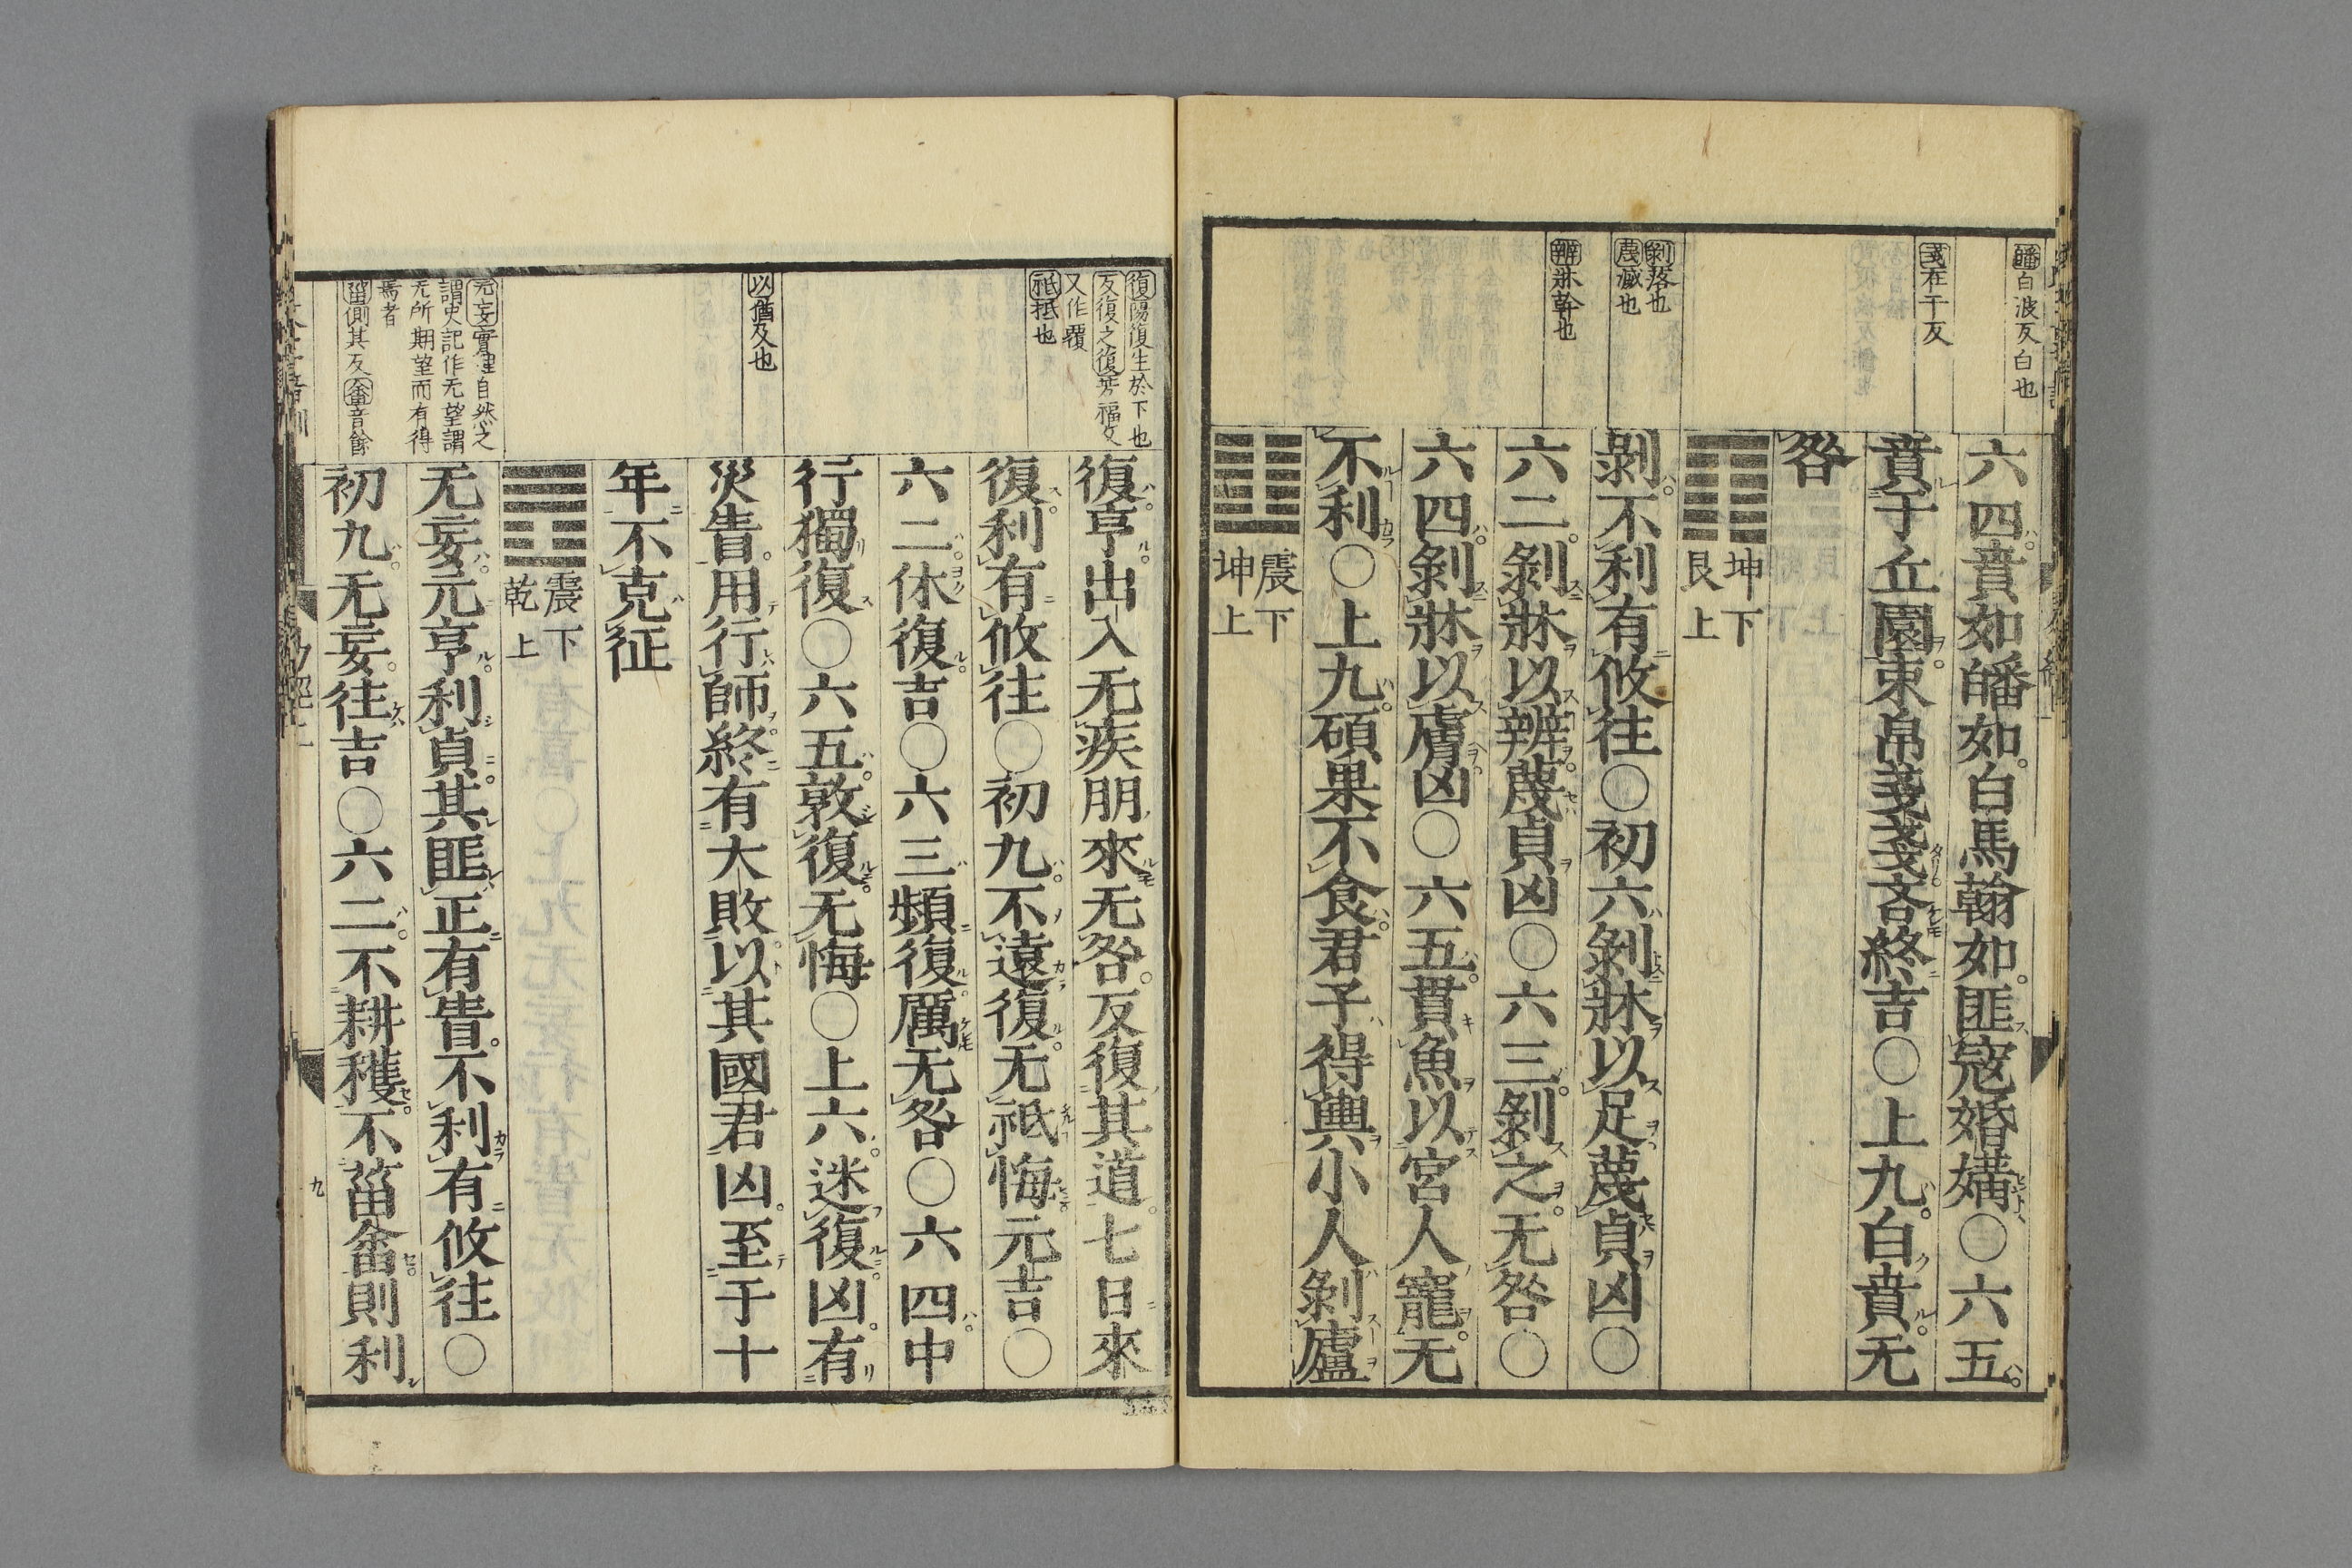 皤白波反白也
戔在干反
剝落也
蔑滅也
辨牀幹也
六四賁如皤如白馬翰如匪寇婚媾〇六五
賁于丘園束帛戔戔吝終吉〇上九白賁无
咎
坤下
艮上
剝不利有攸往〇初六剝牀以足蔑貞凶〇
六二剝牀以辨蔑貞凶〇六三剝之无咎〇
六四剝牀以膚凶〇六五貫魚以宮人寵无
不利〇上九碩果不食君子得輿小人剝廬
震下
坤上
復陽復生於下也
反復之復芳福反
又作覆
祗抵也
以猶及也
无妄實理自然之
謂史記作无望謂
无所期望而有得
焉者
菑側其反畬音餘
復亨出入无疾朋來无咎反復其道七日來
復利有攸往〇初九不遠復无祗悔元吉〇
六二休復吉〇六三頻復厲无咎〇六四中
行獨復〇六五敦復无悔〇上六迷復凶有
災眚用行師終有大敗以其國君凶至于十
年不克征
震下
乾上
无妄元亨利貞其匪正有眚不利有攸往〇
初九无妄往吉〇六二不耕穫不菑畬則利
九